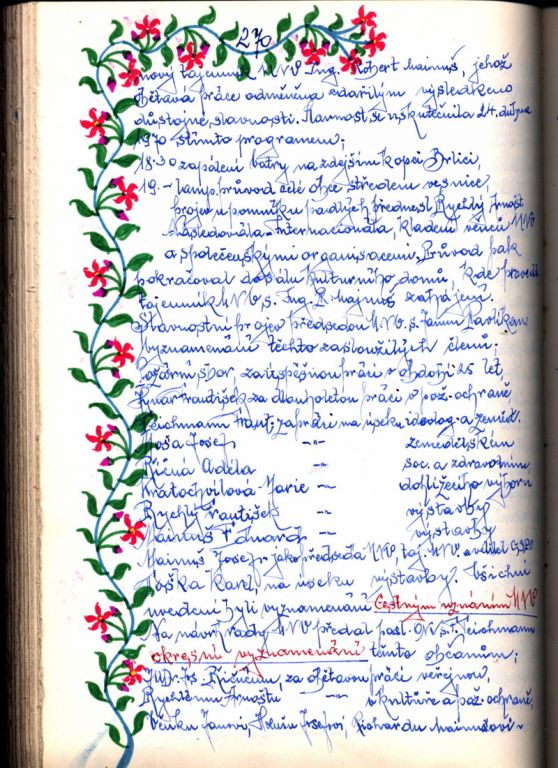 270
nový tajemník MNV Ing. Robert Mainuš, jehož
obětavá práce odměněna zdařilým výsledkem
důstojné slavnosti. Slavnost se uskutečnila 24. dubna
1970 s tímto programem;
18.30 zapálení vatry na zdejším kopci Brlici,
19.- lamp. průvod celé obce středem vesnice,
projev u pomníku padlých přednesl Rychlý Arnošt
následovala Internacionála, kladení věnců MNV
a společenskými organisacemi, Průvod pak
pokračoval do sálu kulturního domu, kde provedl
tajemník MNV s. Ing. R. Majnuš zahájení.
Slavnostní projev předsedou MNV. s. Janem Pavlíkem
vyznamenání těchto zasloužilých členů:
Požární sbor, za úspěšnou práci v období 25 let,
František za dlouholetou práci v pož. ochraně,
Teichmann Frant: za práci na úseku ideolog. a zeměd.
Moša Josef -"- zemědělském
Říčná Adéla -"- soc. a zdravotním
Kratochvilová Marie -"- dohlížecího výboru
Rychlý František -"- výstavby
Mainuš Eduard -"- výstavby
Mainuš Josef jako předseda MNV, taj. MNV. a
Toška Karel, na úseku výstavby. Všichni
uvedeni byli vyznamenáni Čestným uznáním MNV
Na návrh rady MNV předal posl. ONV s. Teichmann
okresní vyznamenání těmto občanům;
JUDr. Fr. za obětavou práci veřejnou,
Rychlému Arnoštu -"- v kultuře a pož. ochraně,
Janovi, Josefovi, Mainušovi -